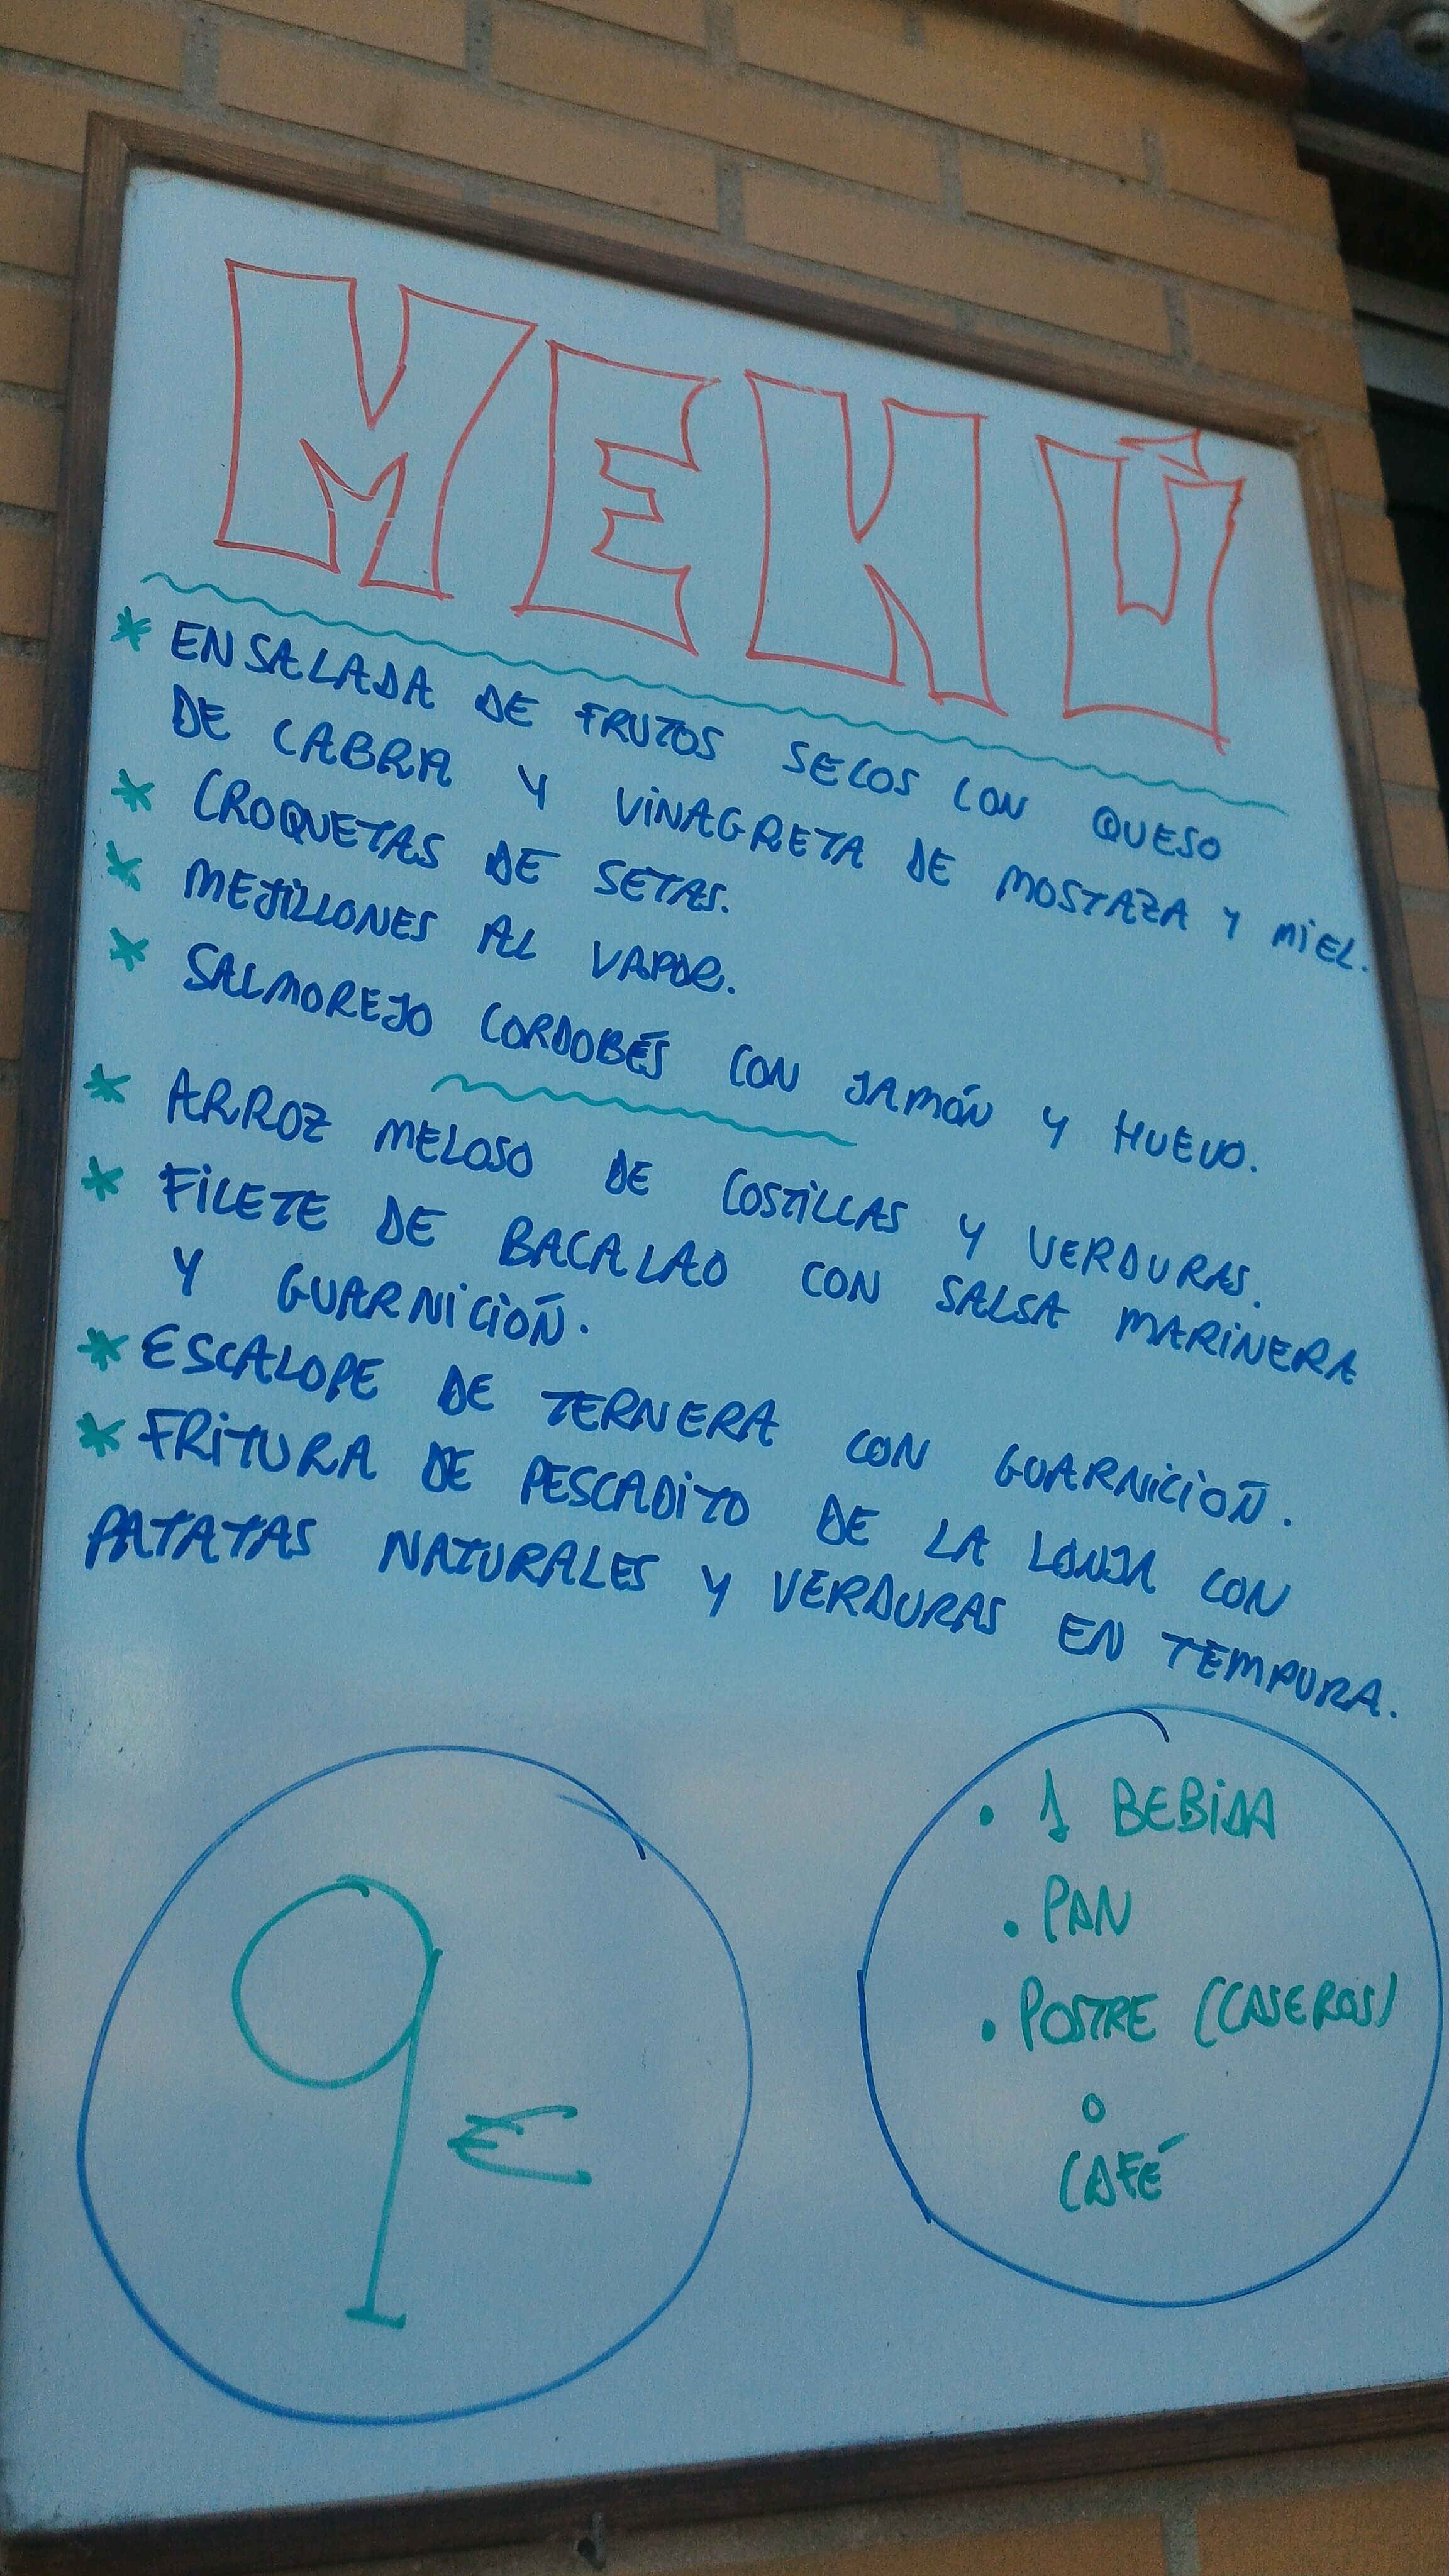 MENÚ
* ENSALADA DE FRUTOS SECOS CON QUESO
DE CABRA Y VINAGRETA DE MOSTAZA Y MIEL.
* CROQUETAS DE SETAS.
* MEJILLONES AL VAPOR.
* SALMOREJO CORDOBÉS CON JAMÓN Y HUEVO.
* ARROZ MELOSO DE COSTILLAS Y VERDURAS.
* FILETE DE BACALAO CON SALSA MARINERA
Y GUARNICIÓN.
* ESCALOPE DE TERNERA CON GUARNICIÓN.
* FRITURA DE PESCADITO DE LA LONJA CON
PATATAS NATURALES Y VERDURAS EN TEMPURA.
9 €
• 1 BEBIDA
• PAN
• POSTRE (CASEROS)
O
CAFÉ